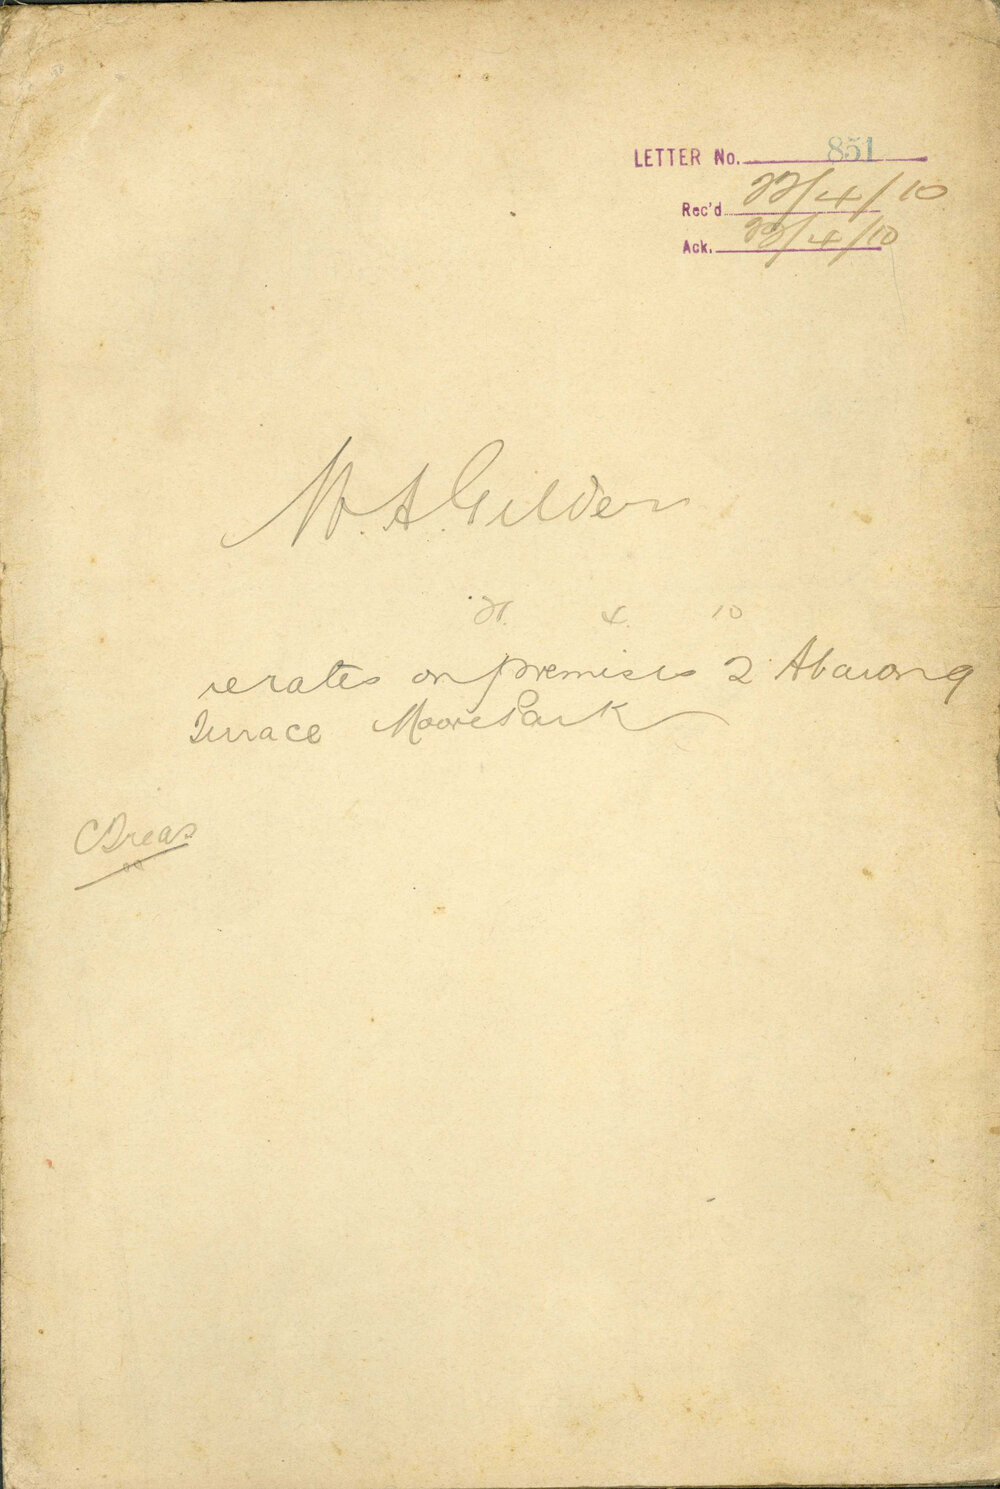 LETTER No. 851
Rec'd 22/4/10
Ack. 22/4/10
W. A. Gilder
21. 4. 10
re rates on premises 2 Abarong
Terrace Moore Park
C Treas